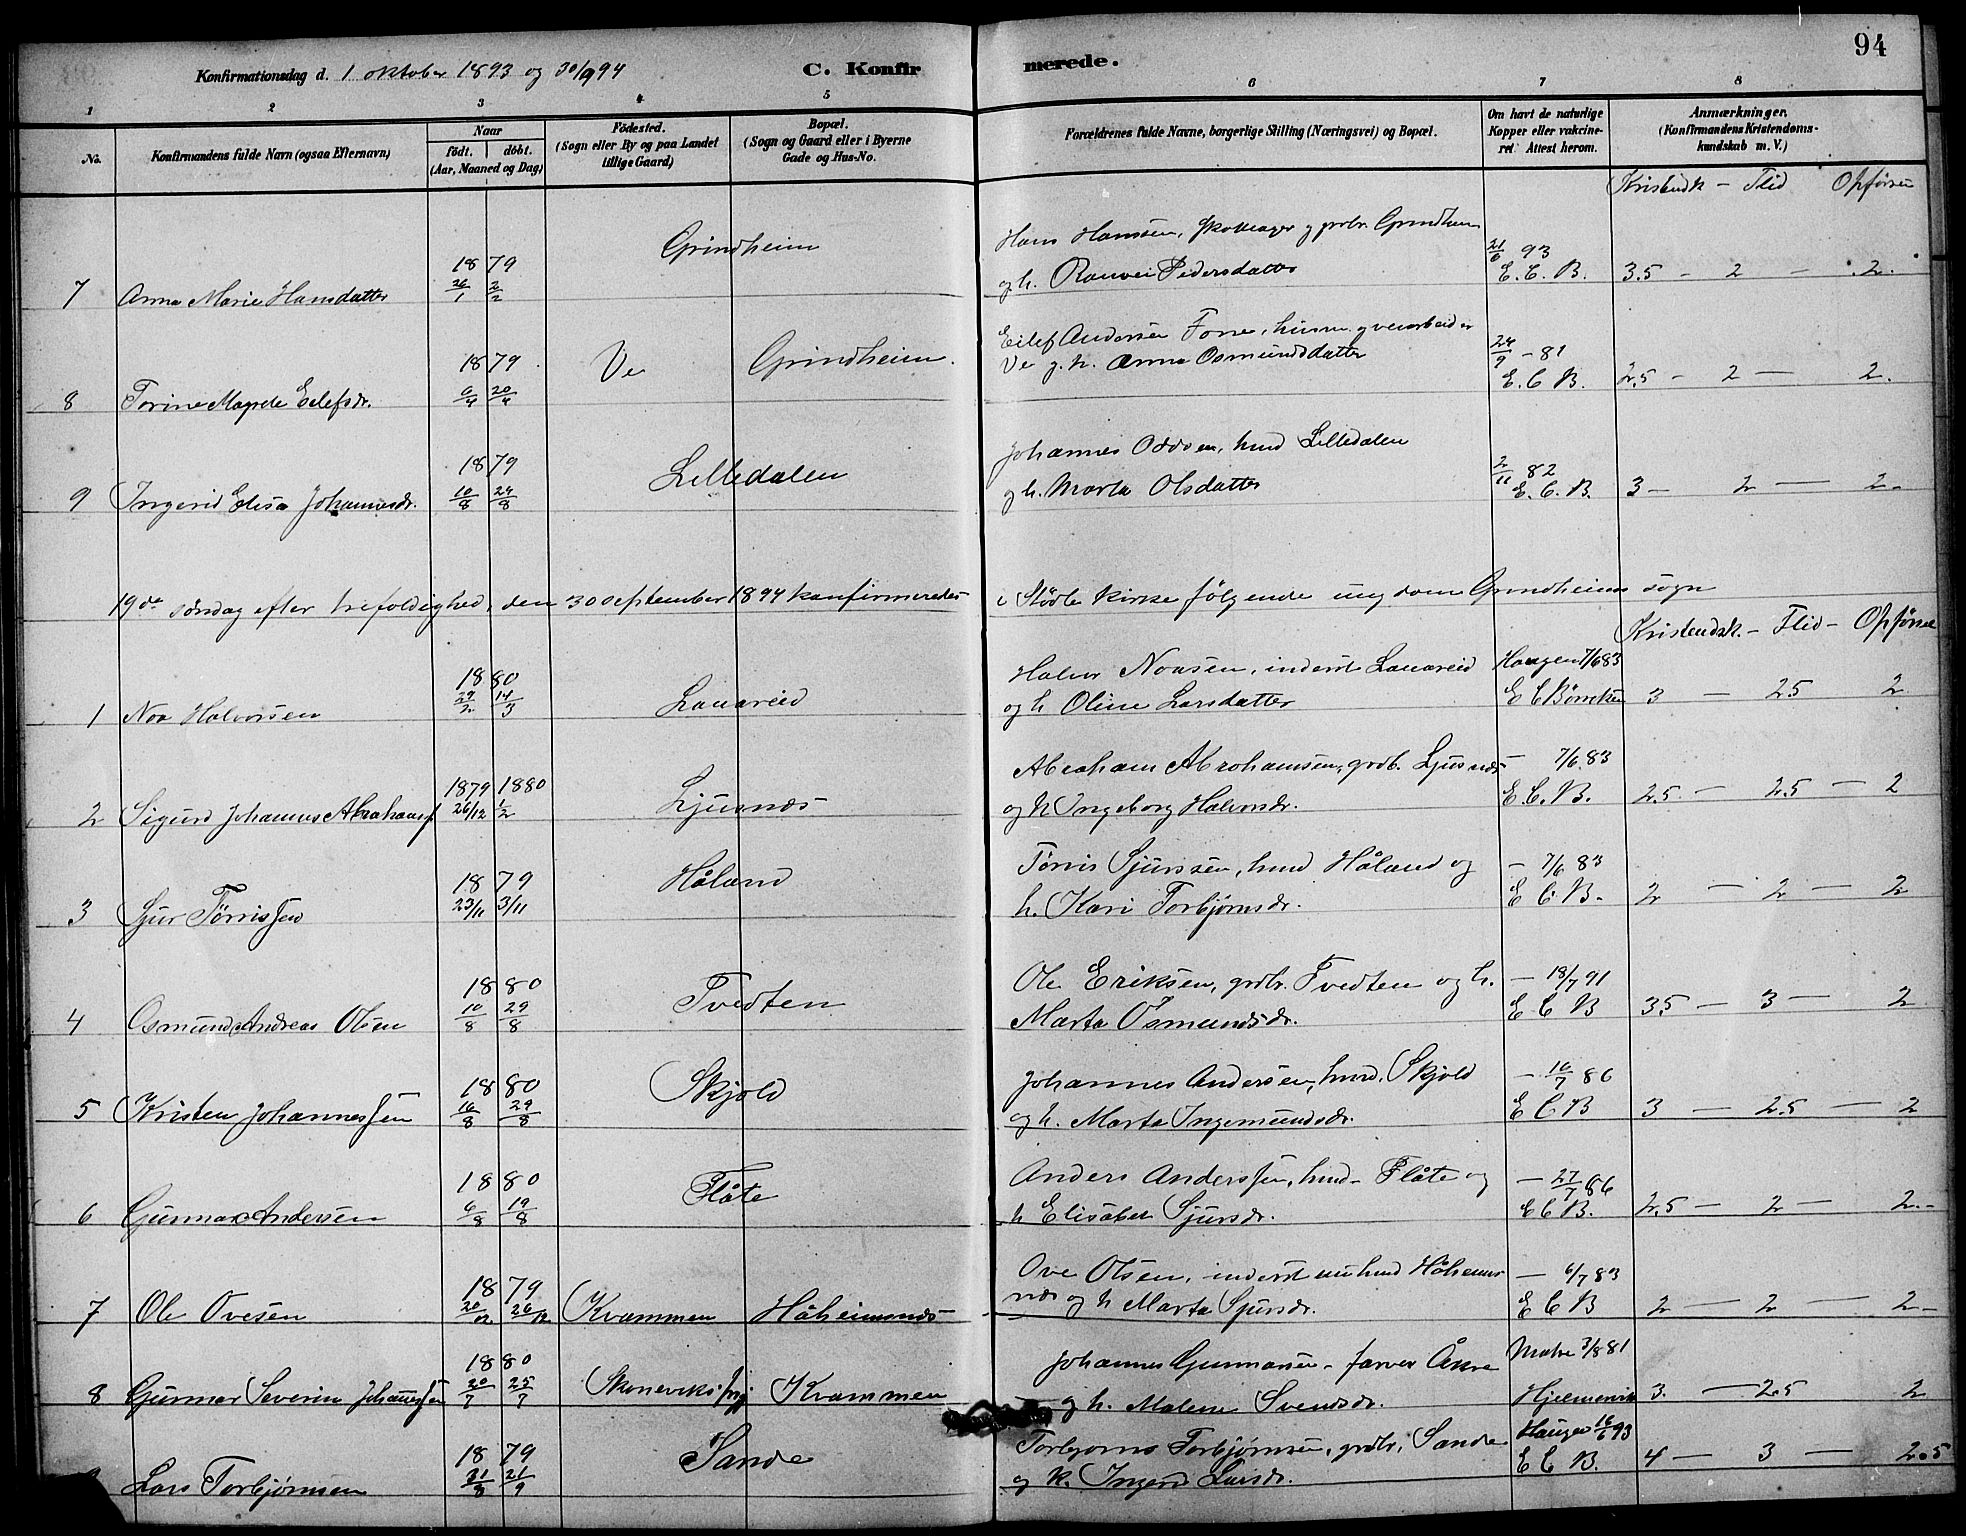 94
Konfirmationsdag d. 1 oktober 1893 og 30/9 94
C. Konfirmerede.
1 2 3 4 5 6 7 8
No.
Konfirmandens fulde Navn (ogsaa Efternavn)
Naar
født. døbt.
(Aar, Maaned og Dag)
Fødested.
(Sogn eller By og paa Landet
tillige Gaard)
Bopæl.
(Sogn og Gaard eller i Byerne
Gade og Hus-No.
Forældrenes fulde Navne, borgerlige Stilling (Næringsvei) og Bopæl.
Om havt de naturlige
Kopper eller vakcine-
ret Attest herom.
Anmærkninger.
(Konfirmandens Kristendoms-
kundskab m. V.)
Kristendk - Flid Opførsel
7 Anna Marie Hansdatter 1879 26/1 2/2 Grindheim
Hans Hanssen, g grbr. Grindheim
og h. Ranvei Pedersdatter
21/6 93
E. C. B. 3.5 - 2 - 2.
8 Torine Eilefsdr. 1879 6/4 20/4 Ve Grindheim.
Eilef Andersen
Ve g. h. Anna Osmundsdatter
24/9 - 81
E. C B. 2,5 - 2 - 2.
9 Ingerid Elisa Johannesdr. 1879 10/8 24/8 Lilledalen
Johannes Oddsen, husd Lilledalen
og h. Marta Olsdatter
2/11 82
E. C. B. 3 - 2 - 2.
19de søndag efter trefoldighed, den 30 september 1894 konfirmeredes i Stødle kirke følgende ungdom Grindheims sogn
Kristendsk. - Flid - Opførsel
1 Noa Halvorsen 1880 29/2 14/3 Lauareid
Halvor Noasen, inderst Lauareid
og h Oline Larsdatter
Haugen 7/6 83
E C Børretzen 3 - 25 2
2 Sigurd Johannes Abrahamss 1879 26/12 1880 1/2 Ljusnæs
Abraham Abrahamsen, grdb. Ljusnæs
og h Ingeborg Halvorsdr.
- 7/6 83
E. C. B. 2.5. - 2.5 - 2
3 Sjur Tørrissen 1879 23/11 3/11 Håland
Tørris Sjurssen, husd Håland og
h. Kari Torbjørnsdr.
- 7/6 83
E C. B. 2 - 2 - 2
4 Osmund Andreas Olsen 1880 10/8 29/8 Tvedten
Ole Eriksen, grdbr. Tvedten og h.
Marta Osmundsdr.
- 18/7 91
E C B 35 - 3 - 2
5 Kristen Johannessen 1880 16/8 29/8 Skjold
Johannes Andersen, husd. Skjold
og h. Marta Ingemundsdr.
- 16/7 86
E C B 3 - 2.5 - 2
6 Gunnar Andersen 1880 6/8 19/8 Flåte
Anders Anderssen, husd - Flåte og
h Elisabet Sjursdr.
- 27/7 86
E C B. 2,5 - 2 - 2.
7 Ole Ovesen 1879 20/12 26/12 Kvammen Håheimsnæs
Ove Olsen, inderst nu husd Håheims
næs og h Marta Sjursdr.
- 6/7 83
E C B 2 - 2 - 2-
8 Gunnar Severin Johannessen 1880 20/7 25/7 Skoneviks Kvammen
Johannes Gunnarsen - farver Åkre
og h. Malene Svendsdr.
Matre 3/8 81
Hjelmervik 3. - 2.5 2
Lars Torbjørnsen 1879 31/8 21/9 Sande
Torbjørns Torbjørnsen, grdbr, Sande
og h. Ingerd Larsdr.
Haugen 16/6 93
E C B. 4 - 3 - 2.5